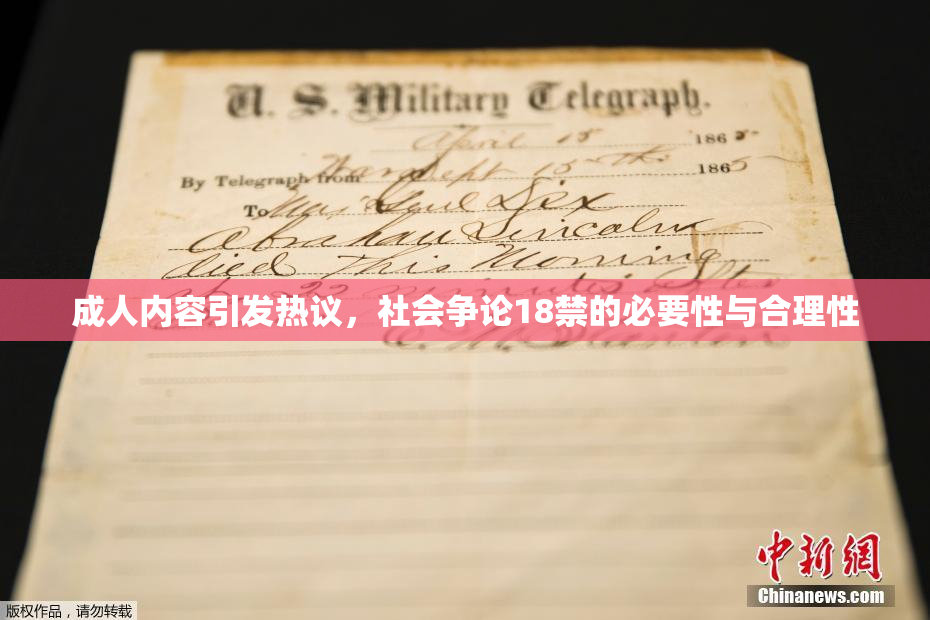 U. S. Military Telegraph.
April 15 1865
By Telegraph from War Dept 15th 1865
To Maj Genl Dix
Abraham Lincoln
died This Morning
22 minutes after
成人内容引发热议，社会争论18禁的必要性与合理性
中新网
Chinanews.com
版权作品，请勿转载